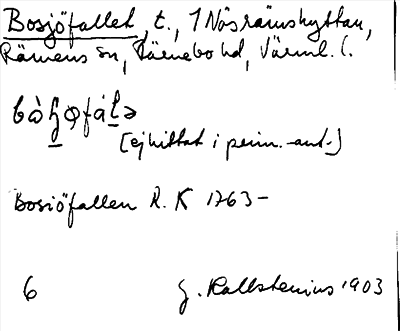 Bosjöfallet, t., 1 Näsrämshyttan,
Rämens sn, Färnebo hd, Värml. l.
[ej hittat i prim.-ant.]
Bosiöfallen R. K 1763–
6 G. Kallstenius 1903